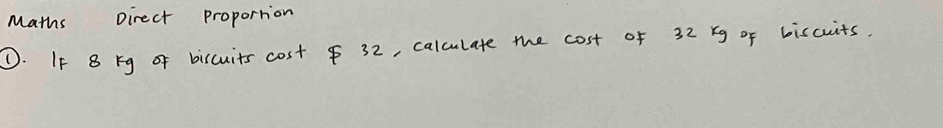 Maths Direct Proportion
①. If 8 kg of biscuits cost $ 32, calculate the cost of 32 kg of biscuits.